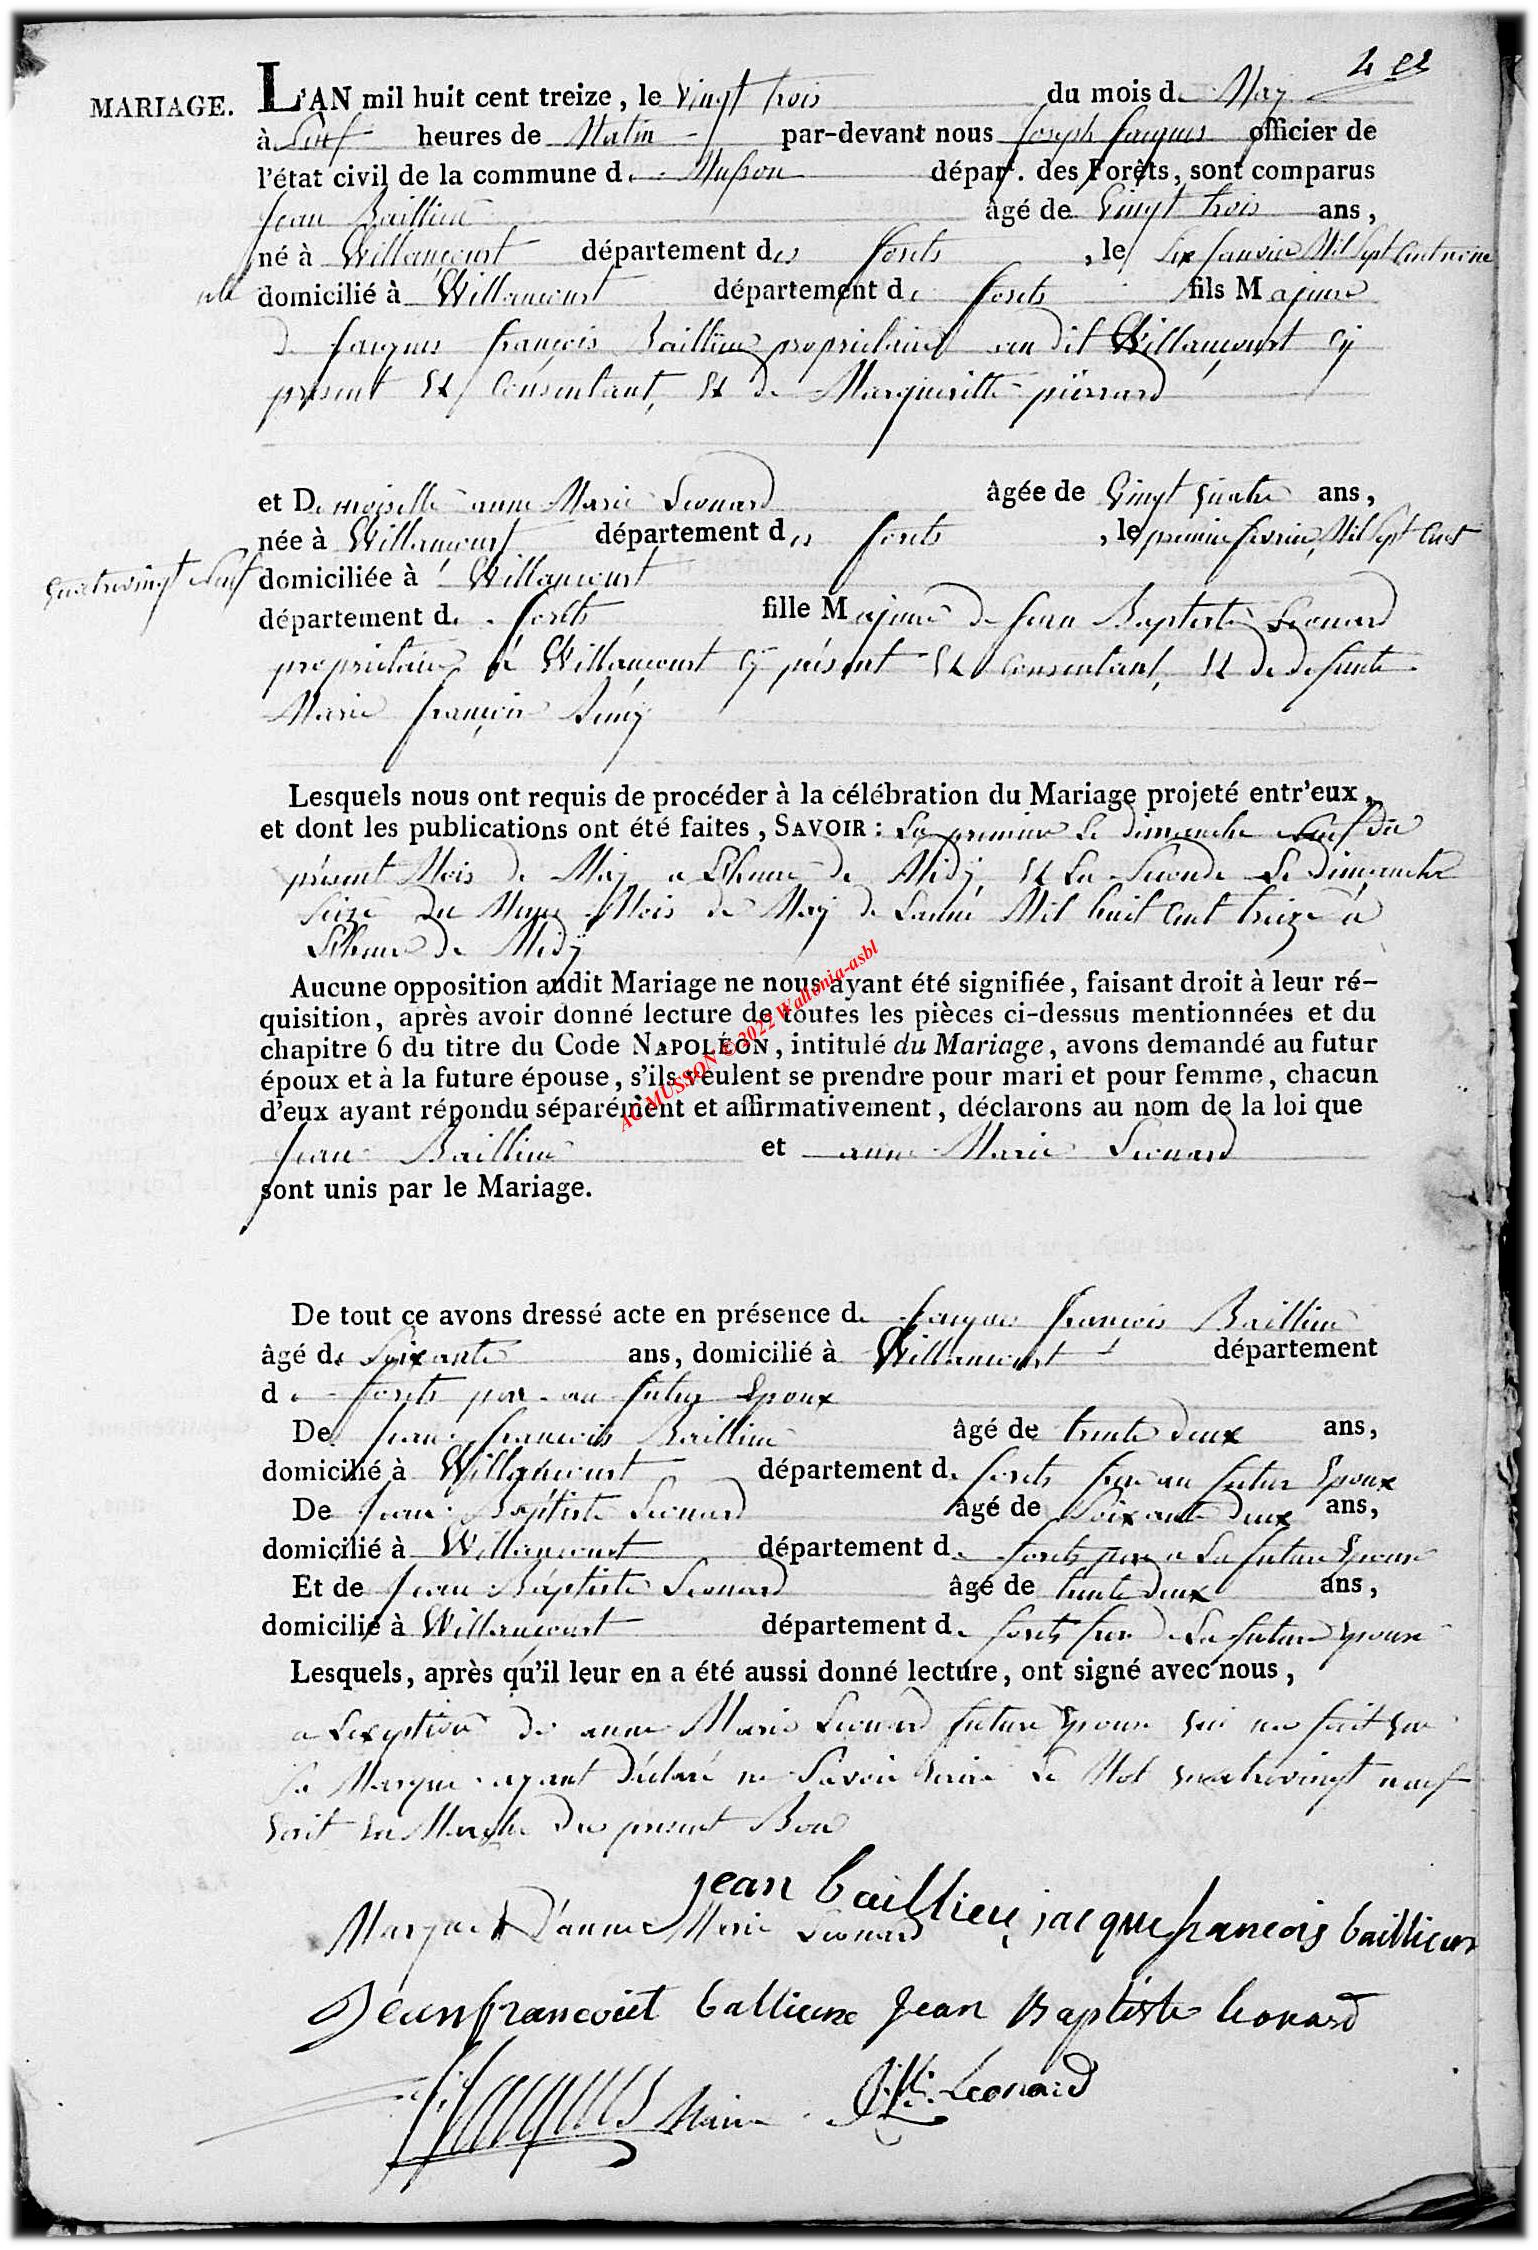 4 et
MARIAGE. L'AN mil huit cent treize, le Vingt trois du mois de May
à Neuf heures de Matin par-devant nous Joseph Jacques officier de
l'état civil de la commune de Musson dépar. des Forêts, sont comparus
Jean Baillieu âgé de Vingt trois ans,
né à Willancourt département des forets, le Six Janvier Mil Sept Cent
domicilié à Willancourt département de forets fils Majeure
de Jacques françois Baillieu propriétaire au dit Willancourt cy
présent Et Consentant, Et de Margueritte pierrard
et Demoiselle anne Marie Leonard âgée de Vingt quatre ans,
née à Willancourt département des forets, le premier fevrier Mil Sept Cent
quatrevingt Neuf domiciliée à Willancourt
département de forets fille Majeure de Jean Baptiste Leonard
propriétaire à Willancourt cy présent Et Consentant, Et de defunte
Marie françoise
Lesquels nous ont requis de procéder à la célébration du Mariage projeté entr'eux,
et dont les publications ont été faites, SAVOIR : La premiere Le dimanche Neuf du
présent Mois de May a L'heure de Midy, Et La Seconde Le dimanche
Seize du Meme Mois de May de Lanné Mil huit Cent treize a
L'heure de Midy
Aucune opposition audit Mariage ne nous ayant été signifiée, faisant droit à leur ré-
quisition, après avoir donné lecture de toutes les pièces ci-dessus mentionnées et du
chapitre 6 du titre du Code NAPOLÉON, intitulé du Mariage, avons demandé au futur
époux et à la future épouse, s'ils veulent se prendre pour mari et pour femme, chacun
d'eux ayant répondu séparément et affirmativement, déclarons au nom de la loi que
Jean Baillieu et anne Marie Leonard
sont unis par le Mariage.
AC MUSSON © 2022 Wallonia-asbl
De tout ce avons dressé acte en présence de Jacques francois Baillieu
âgé de Soixante ans, domicilié à Willancourt département
de forets pere au futur Epoux
De Jean francois Baillieu âgé de trente deux ans,
domicilié à Willancourt département de forets frere au futur Epoux
De Jean Baptiste Leonard âgé de Soixante deux ans,
domicilié à Willancourt département de forets pere a La future Epouse
Et de Jean Baptiste Leonard âgé de trente deux ans,
domicilié à Willancourt département de forets frere de La future Epouse
Lesquels, après qu'il leur en a été aussi donné lecture, ont signé avec nous,
a Lexeption de anne Marie Leonard future Epouse qui na fait que
Sa Marque ayant déclaré ne Savoir Ecrire Le Mot quatrevingt neuf
Ecrit En Marge du present Bon
jean baillieu jacque francois baillieux
Marque D'anne Marie Leonard
Jean francoiet ballieux Jean Baptiste leonard
Jacques Maire Leonard